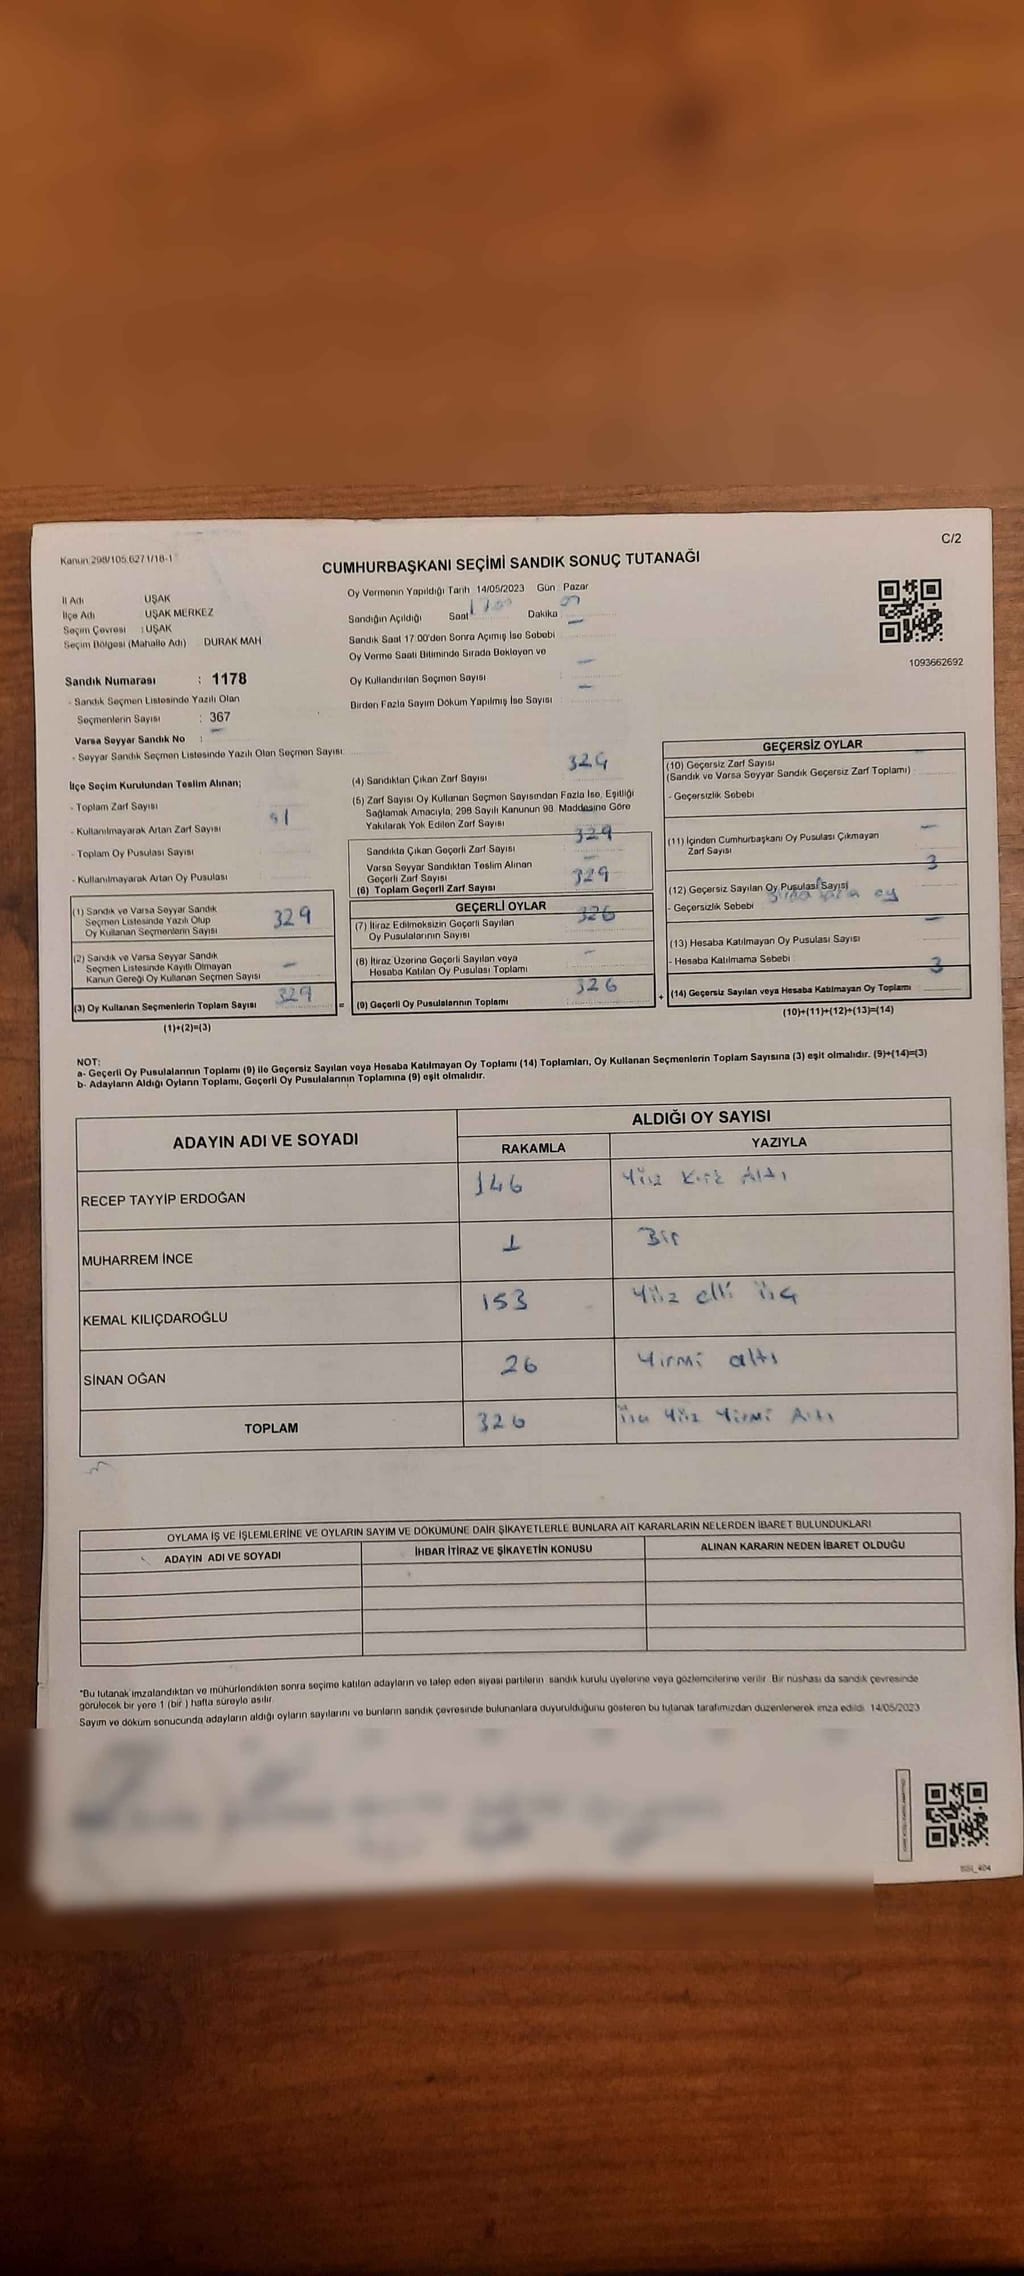 Kanun:298/105,6271/18-1
C/2
CUMHURBAŞKANI SEÇİMİ SANDIK SONUÇ TUTANAĞI
İl Adı UŞAK
İlçe Adı UŞAK MERKEZ
Seçim Çevresi : UŞAK
Seçim Bölgesi (Mahalle Adı) DURAK MAH
Oy Vermenin Yapıldığı Tarih 14/05/2023 Gün Pazar
Sandığın Açıldığı Saat Dakika
Sandık Saat 17:00'den Sonra Açımış İse Sebebi –
Oy Verme Saati Bitiminde Sırada Bekleyen ve
Oy Kullandırılan Seçmen Sayısı –
Birden Fazla Sayım Döküm Yapılmış İse Sayısı –
1093662692
Sandık Numarası : 1178
- Sandık Seçmen Listesinde Yazılı Olan
Seçmenlerin Sayısı : 367
Varsa Seyyar Sandık No : –
- Seyyar Sandık Seçmen Listesinde Yazılı Olan Seçmen Sayısı:
İlçe Seçim Kurulundan Teslim Alınan;
- Toplam Zarf Sayısı
- Kullanılmayarak Artan Zarf Sayısı
- Toplam Oy Pusulası Sayısı
- Kullanılmayarak Artan Oy Pusulası
(1) Sandık ve Varsa Seyyar Sandık
Seçmen Listesinde Yazılı Olup
Oy Kullanan Seçmenlerin Sayısı 329
(2) Sandık ve Varsa Seyyar Sandık
Seçmen Listesinde Kayıtlı Olmayan
Kanun Gereği Oy Kullanan Seçmen Sayısı –
(3) Oy Kullanan Seçmenlerin Toplam Sayısı 329 =
(1)+(2)=(3)
(4) Sandıktan Çıkan Zarf Sayısı 329
(5) Zarf Sayısı Oy Kullanan Seçmen Sayısından Fazla İse, Eşitliği
Sağlamak Amacıyla, 298 Sayılı Kanunun 98. Maddesine Göre
Yakılarak Yok Edilen Zarf Sayısı
Sandıkta Çıkan Geçerli Zarf Sayısı 329
Varsa Seyyar Sandıktan Teslim Alınan
Geçerli Zarf Sayısı –
(6) Toplam Geçerli Zarf Sayısı 329
GEÇERLİ OYLAR
(7) İtiraz Edilmeksizin Geçerli Sayılan
Oy Pusulalarının Sayısı 326
(8) İtiraz Üzerine Geçerli Sayılan veya
Hesaba Katılan Oy Pusulası Toplamı –
(9) Geçerli Oy Pusulalarının Toplamı 326 +
GEÇERSİZ OYLAR
(10) Geçersiz Zarf Sayısı
(Sandık ve Varsa Seyyar Sandık Geçersiz Zarf Toplamı)
- Geçersizlik Sebebi
(11) İçinden Cumhurbaşkanı Oy Pusulası Çıkmayan
Zarf Sayısı –
(12) Geçersiz Sayılan Oy Pusulası Sayısı 3
- Geçersizlik Sebebi oy
(13) Hesaba Katılmayan Oy Pusulası Sayısı –
- Hesaba Katılmama Sebebi
(14) Geçersiz Sayılan veya Hesaba Katılmayan Oy Toplamı 3
(10)+(11)+(12)+(13)=(14)
NOT:
a- Geçerli Oy Pusulalarının Toplamı (9) ile Geçersiz Sayılan veya Hesaba Katılmayan Oy Toplamı (14) Toplamları, Oy Kullanan Seçmenlerin Toplam Sayısına (3) eşit olmalıdır. (9)+(14)=(3)
b- Adayların Aldığı Oyların Toplamı, Geçerli Oy Pusulalarının Toplamına (9) eşit olmalıdır.
ADAYIN ADI VE SOYADI
ALDIĞI OY SAYISI
RAKAMLA YAZIYLA
RECEP TAYYİP ERDOĞAN 146 Yüz Kırk Altı
MUHARREM İNCE 1 Bir
KEMAL KILIÇDAROĞLU 153 Yüz elli üç
SİNAN OĞAN 26 Yirmi altı
TOPLAM 326 üç Yüz Yirmi Altı
OYLAMA İŞ VE İŞLEMLERİNE VE OYLARIN SAYIM VE DÖKÜMÜNE DAİR ŞİKAYETLERLE BUNLARA AİT KARARLARIN NELERDEN İBARET BULUNDUKLARI
ADAYIN ADI VE SOYADI İHBAR İTİRAZ VE ŞİKAYETİN KONUSU ALINAN KARARIN NEDEN İBARET OLDUĞU
"Bu tutanak imzalandıktan ve mühürlendikten sonra seçime katılan adayların ve talep eden siyasi partilerin sandık kurulu üyelerine veya gözlemcilerine verilir. Bir nüshası da sandık çevresinde
görülecek bir yere 1 (bir ) hafta süreyle asılır.
Sayım ve döküm sonucunda adayların aldığı oyların sayılarını ve bunların sandık çevresinde bulunanlara duyurulduğunu gösteren bu tutanak tarafımızdan düzenlenerek imza edildi. 14/05/2023